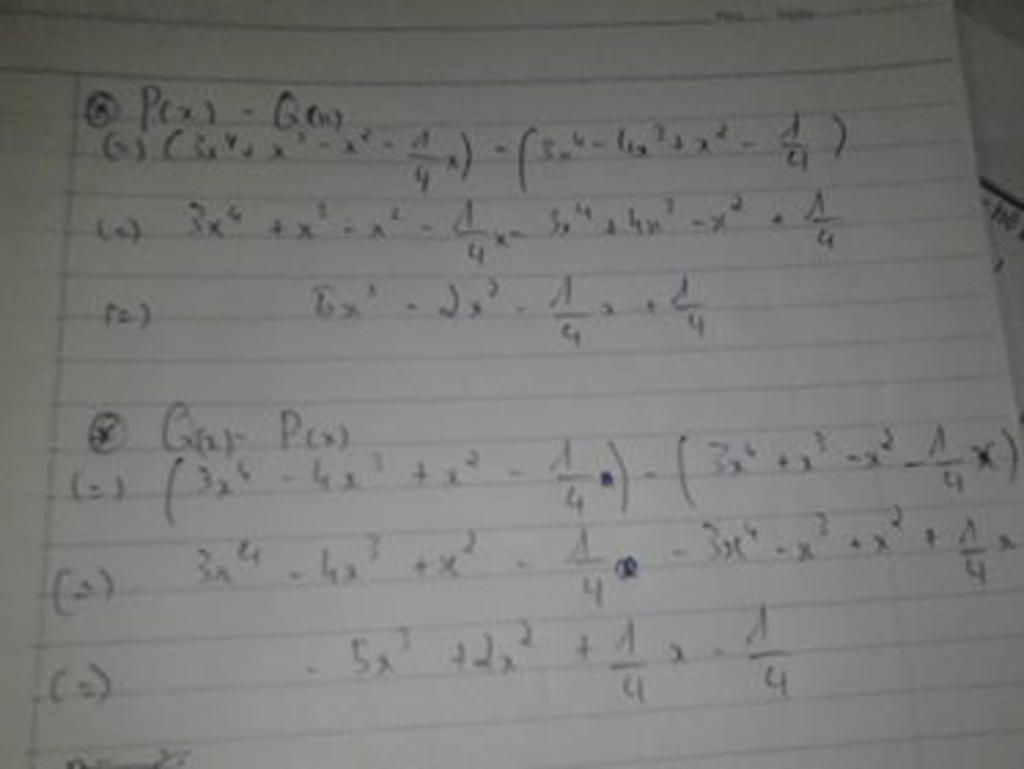 * P(x) - Q(x)
(=) (3x⁴ + x³ - x² - 1/4 x) - (3x⁴ - 4x³ + x² - 1/4)
(=) 3x⁴ + x³ - x² - 1/4 x - 3x⁴ + 4x³ - x² + 1/4
(=) 5x³ - 2x² - 1/4 x + 1/4
* Q(x) - P(x)
(=) (3x⁴ - 4x³ + x² - 1/4) - (3x⁴ + x³ - x² - 1/4 x)
(=) 3x⁴ - 4x³ + x² - 1/4 - 3x⁴ - x³ + x² + 1/4 x
(=) - 5x³ + 2x² + 1/4 x - 1/4